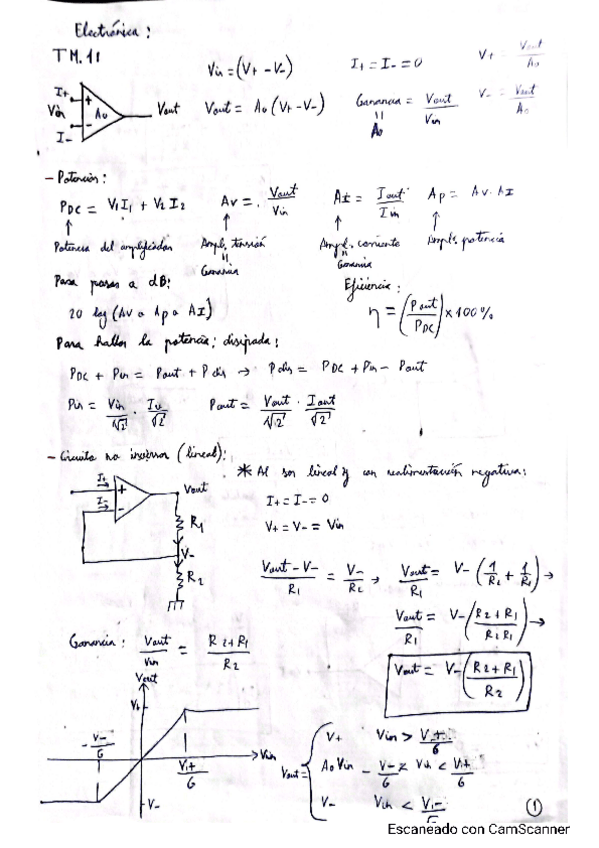 Electrónica:
TM.11
Vin = (V+ - V-)
I+ = I- = 0
V+ = Vout / Ao
I+
Vin
I-
+
-
Ao
Vout
Vout = Ao (V+ - V-)
Ganancia = Vout / Vin
=
Ao
V- = Vout / Ao
- Potencias:
PDC = V1 I1 + V2 I2
AV = Vout / Vin
AI = Iout / Iin
Ap = AV · AI
Potencia del amplificador
Ampl. tensión
=
Ganancia
Ampl. corriente
=
Ganancia
Ampl. potencia
Para pasar a dB:
20 log (AV o Ap o AI)
Eficiencia:
η = (Pout / PDC) × 100%
Para hallar la potencia disipada:
PDC + Pin = Pout + Pdis → Pdis = PDC + Pin - Pout
Pin = Vin / √2 · Iin / √2
Pout = Vout / √2 · Iout / √2
- Circuito no inversor (lineal):
* Al ser lineal y con realimentación negativa:
I+
I-
+
-
Vout
R1
V-
R2
I+ = I- = 0
V+ = V- = Vin
Vout - V- / R1 = V- / R2 → Vout / R1 = V- (1 / R2 + 1 / R1) →
Vout / R1 = V- (R2 + R1 / R2 R1) →
Vout = V- (R2 + R1 / R2)
Ganancia: Vout / Vin = R2 + R1 / R2
Vout
V+
- V- / G
V+ / G
Vin
V-
Vout =
V+ Vin > V+ / G
Ao Vin - V- / G < Vin < V+ / G
V- Vin < V- / G
1
Escaneado con CamScanner